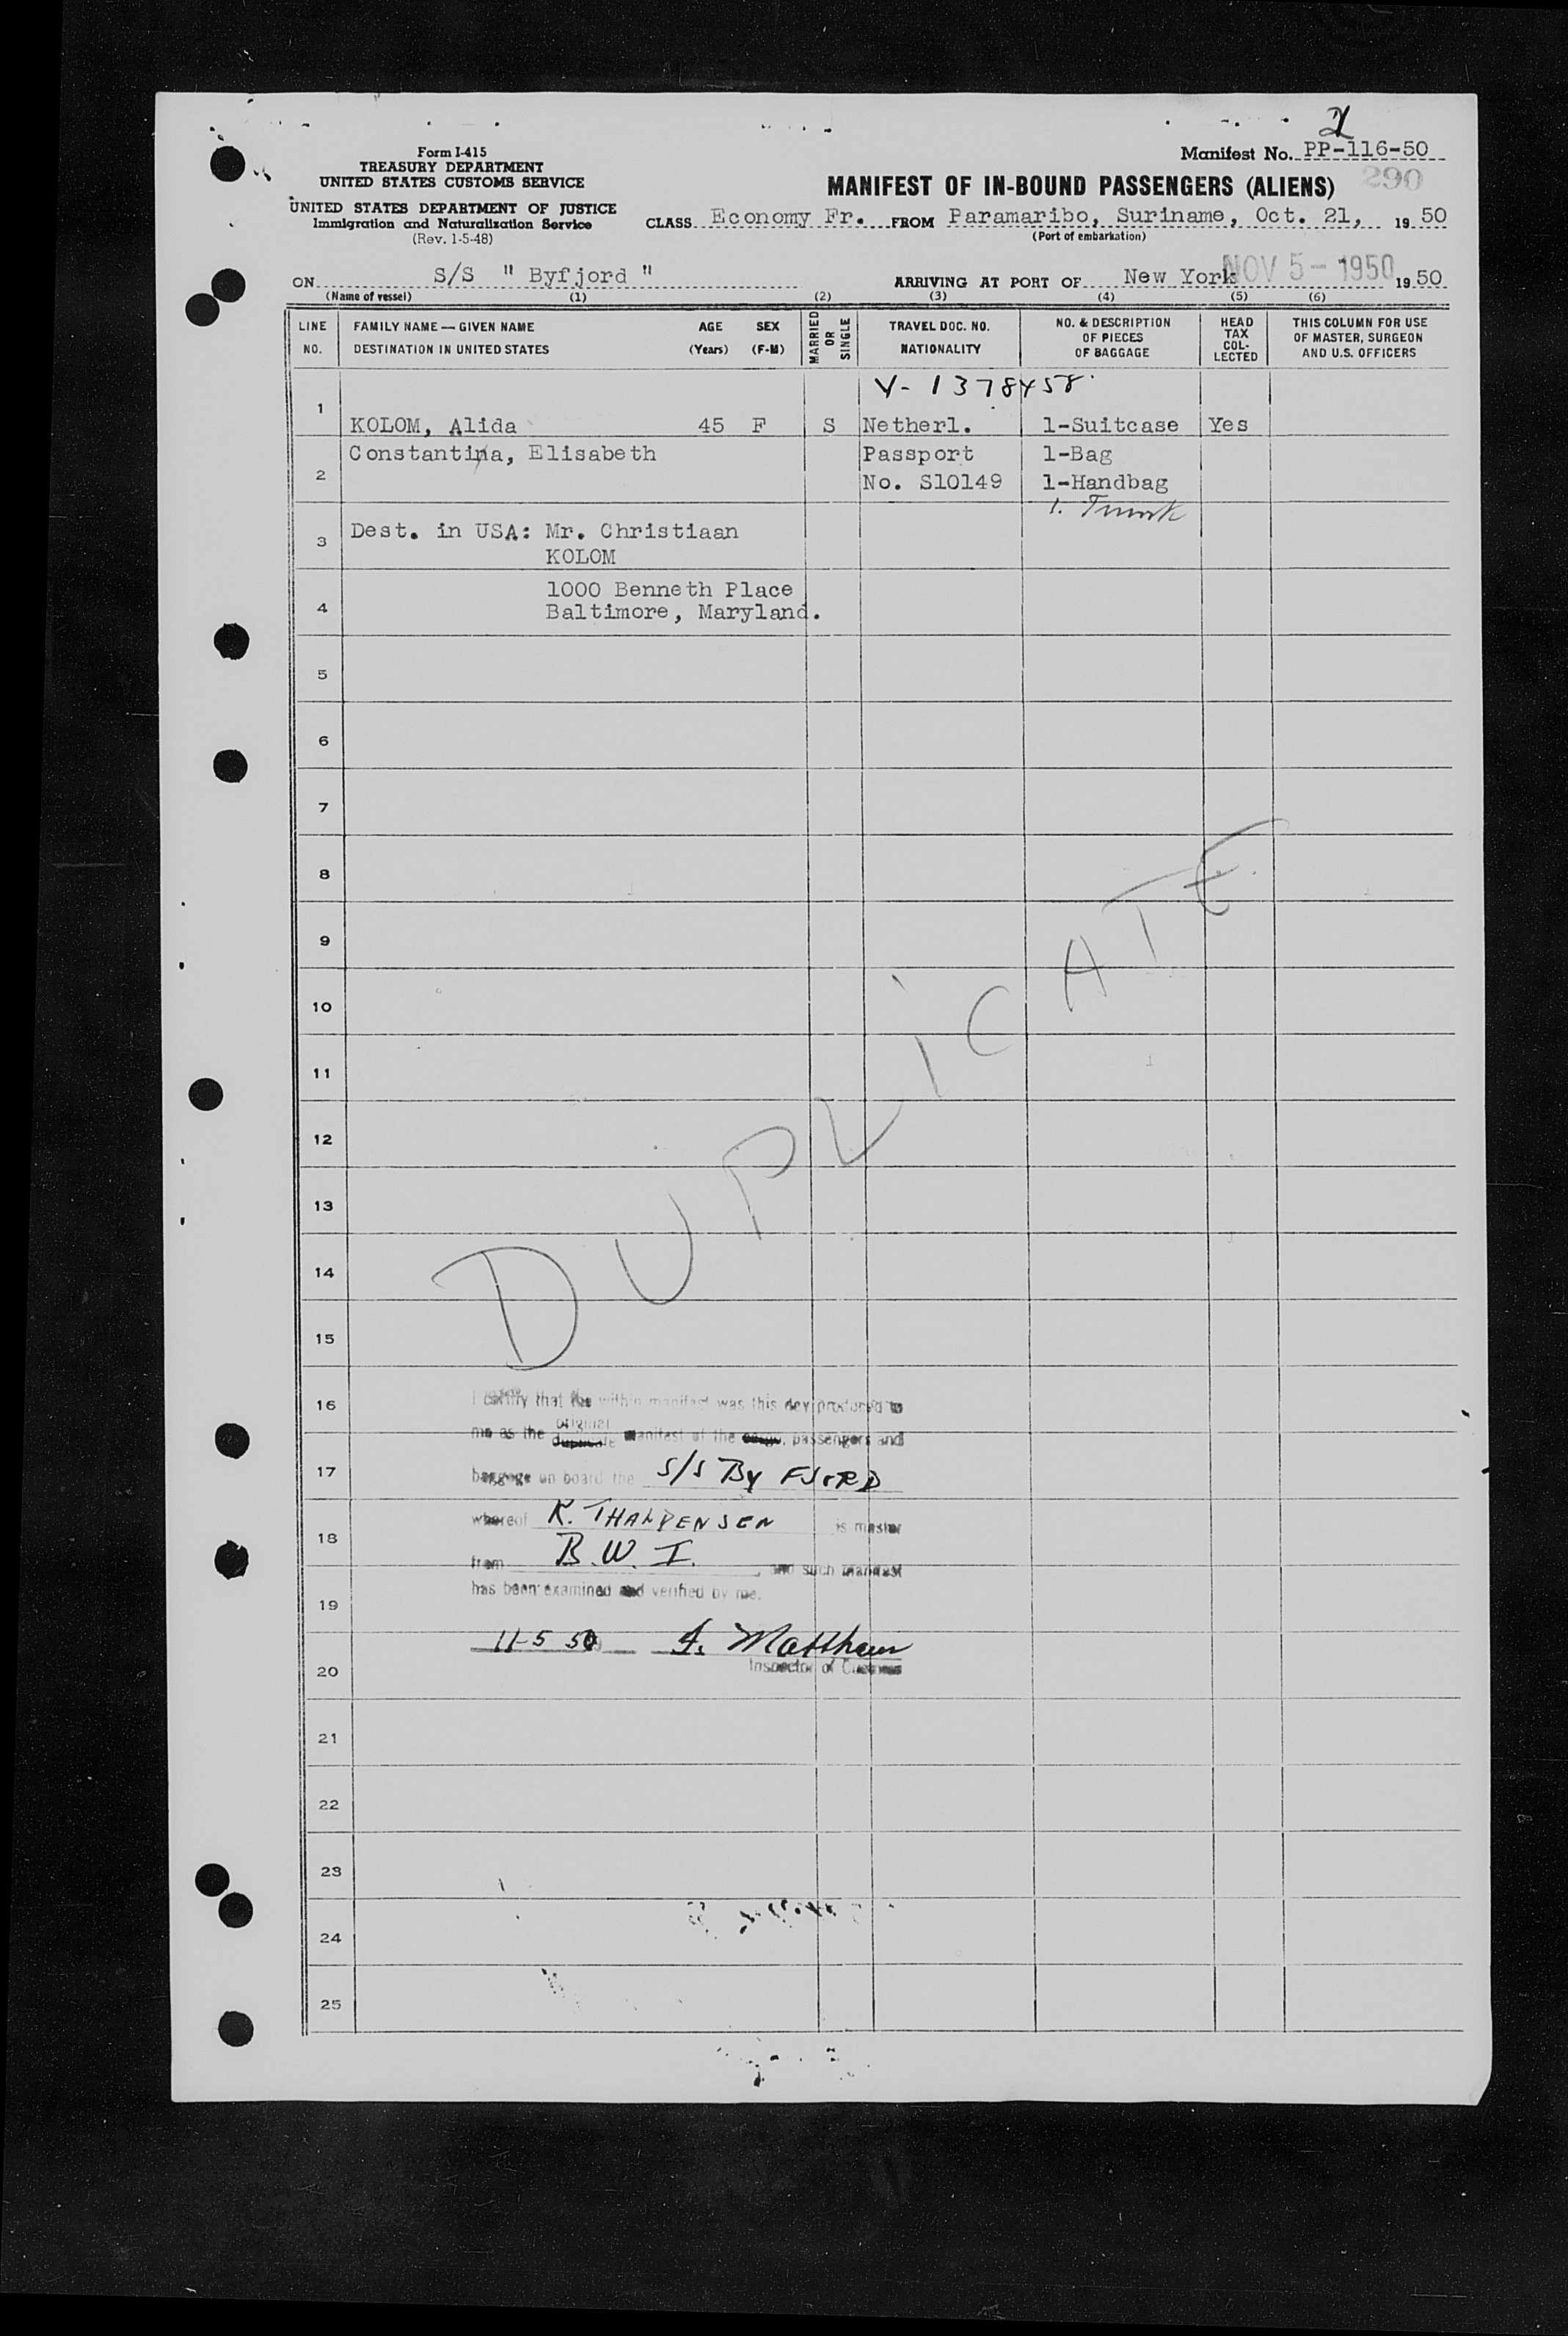 2
Form I-415
TREASURY DEPARTMENT
UNITED STATES CUSTOMS SERVICE
UNITED STATES DEPARTMENT OF JUSTICE
Immigration and Naturalization Service
(Rev. 1-5-48)
Manifest No. PP-116-50
290
MANIFEST OF IN-BOUND PASSENGERS (ALIENS)
CLASS Economy Fr. FROM Paramaribo, Suriname, Oct. 21, 1950
(Port of embarkation)
ON S/S " Byfjord " ARRIVING AT PORT OF New York NOV 5 - 1950 1950
(Name of vessel) (1) (2) (3) (4) (5) (6)
LINE NO.
FAMILY NAME — GIVEN NAME
DESTINATION IN UNITED STATES
AGE (Years)
SEX (F-M)
MARRIED OR SINGLE
TRAVEL DOC. NO.
NATIONALITY
NO. & DESCRIPTION OF PIECES OF BAGGAGE
HEAD TAX COL-LECTED
THIS COLUMN FOR USE OF MASTER, SURGEON AND U.S. OFFICERS
V-1378458
1 KOLOM, Alida 45 F S Netherl. 1-Suitcase Yes
Constantina, Elisabeth Passport 1-Bag
2 No. S10149 1-Handbag
1. Trunk
3 Dest. in USA: Mr. Christiaan
KOLOM
1000 Benneth Place
4 Baltimore, Maryland.
5
6
7
8
9
10
11
12
13
14
15
DUPLICATE
16 I certify that the within manifest was this day produced to
me as the original duplicate manifest of the cargo, passengers and
17 baggage on board the S/S By FJORD
18 whereof K. is master
from B.W.I., and such manifest
has been examined and verified by me.
19
11-5 50 A. Matthews
20 Inspector of Customs
21
22
23
24
25